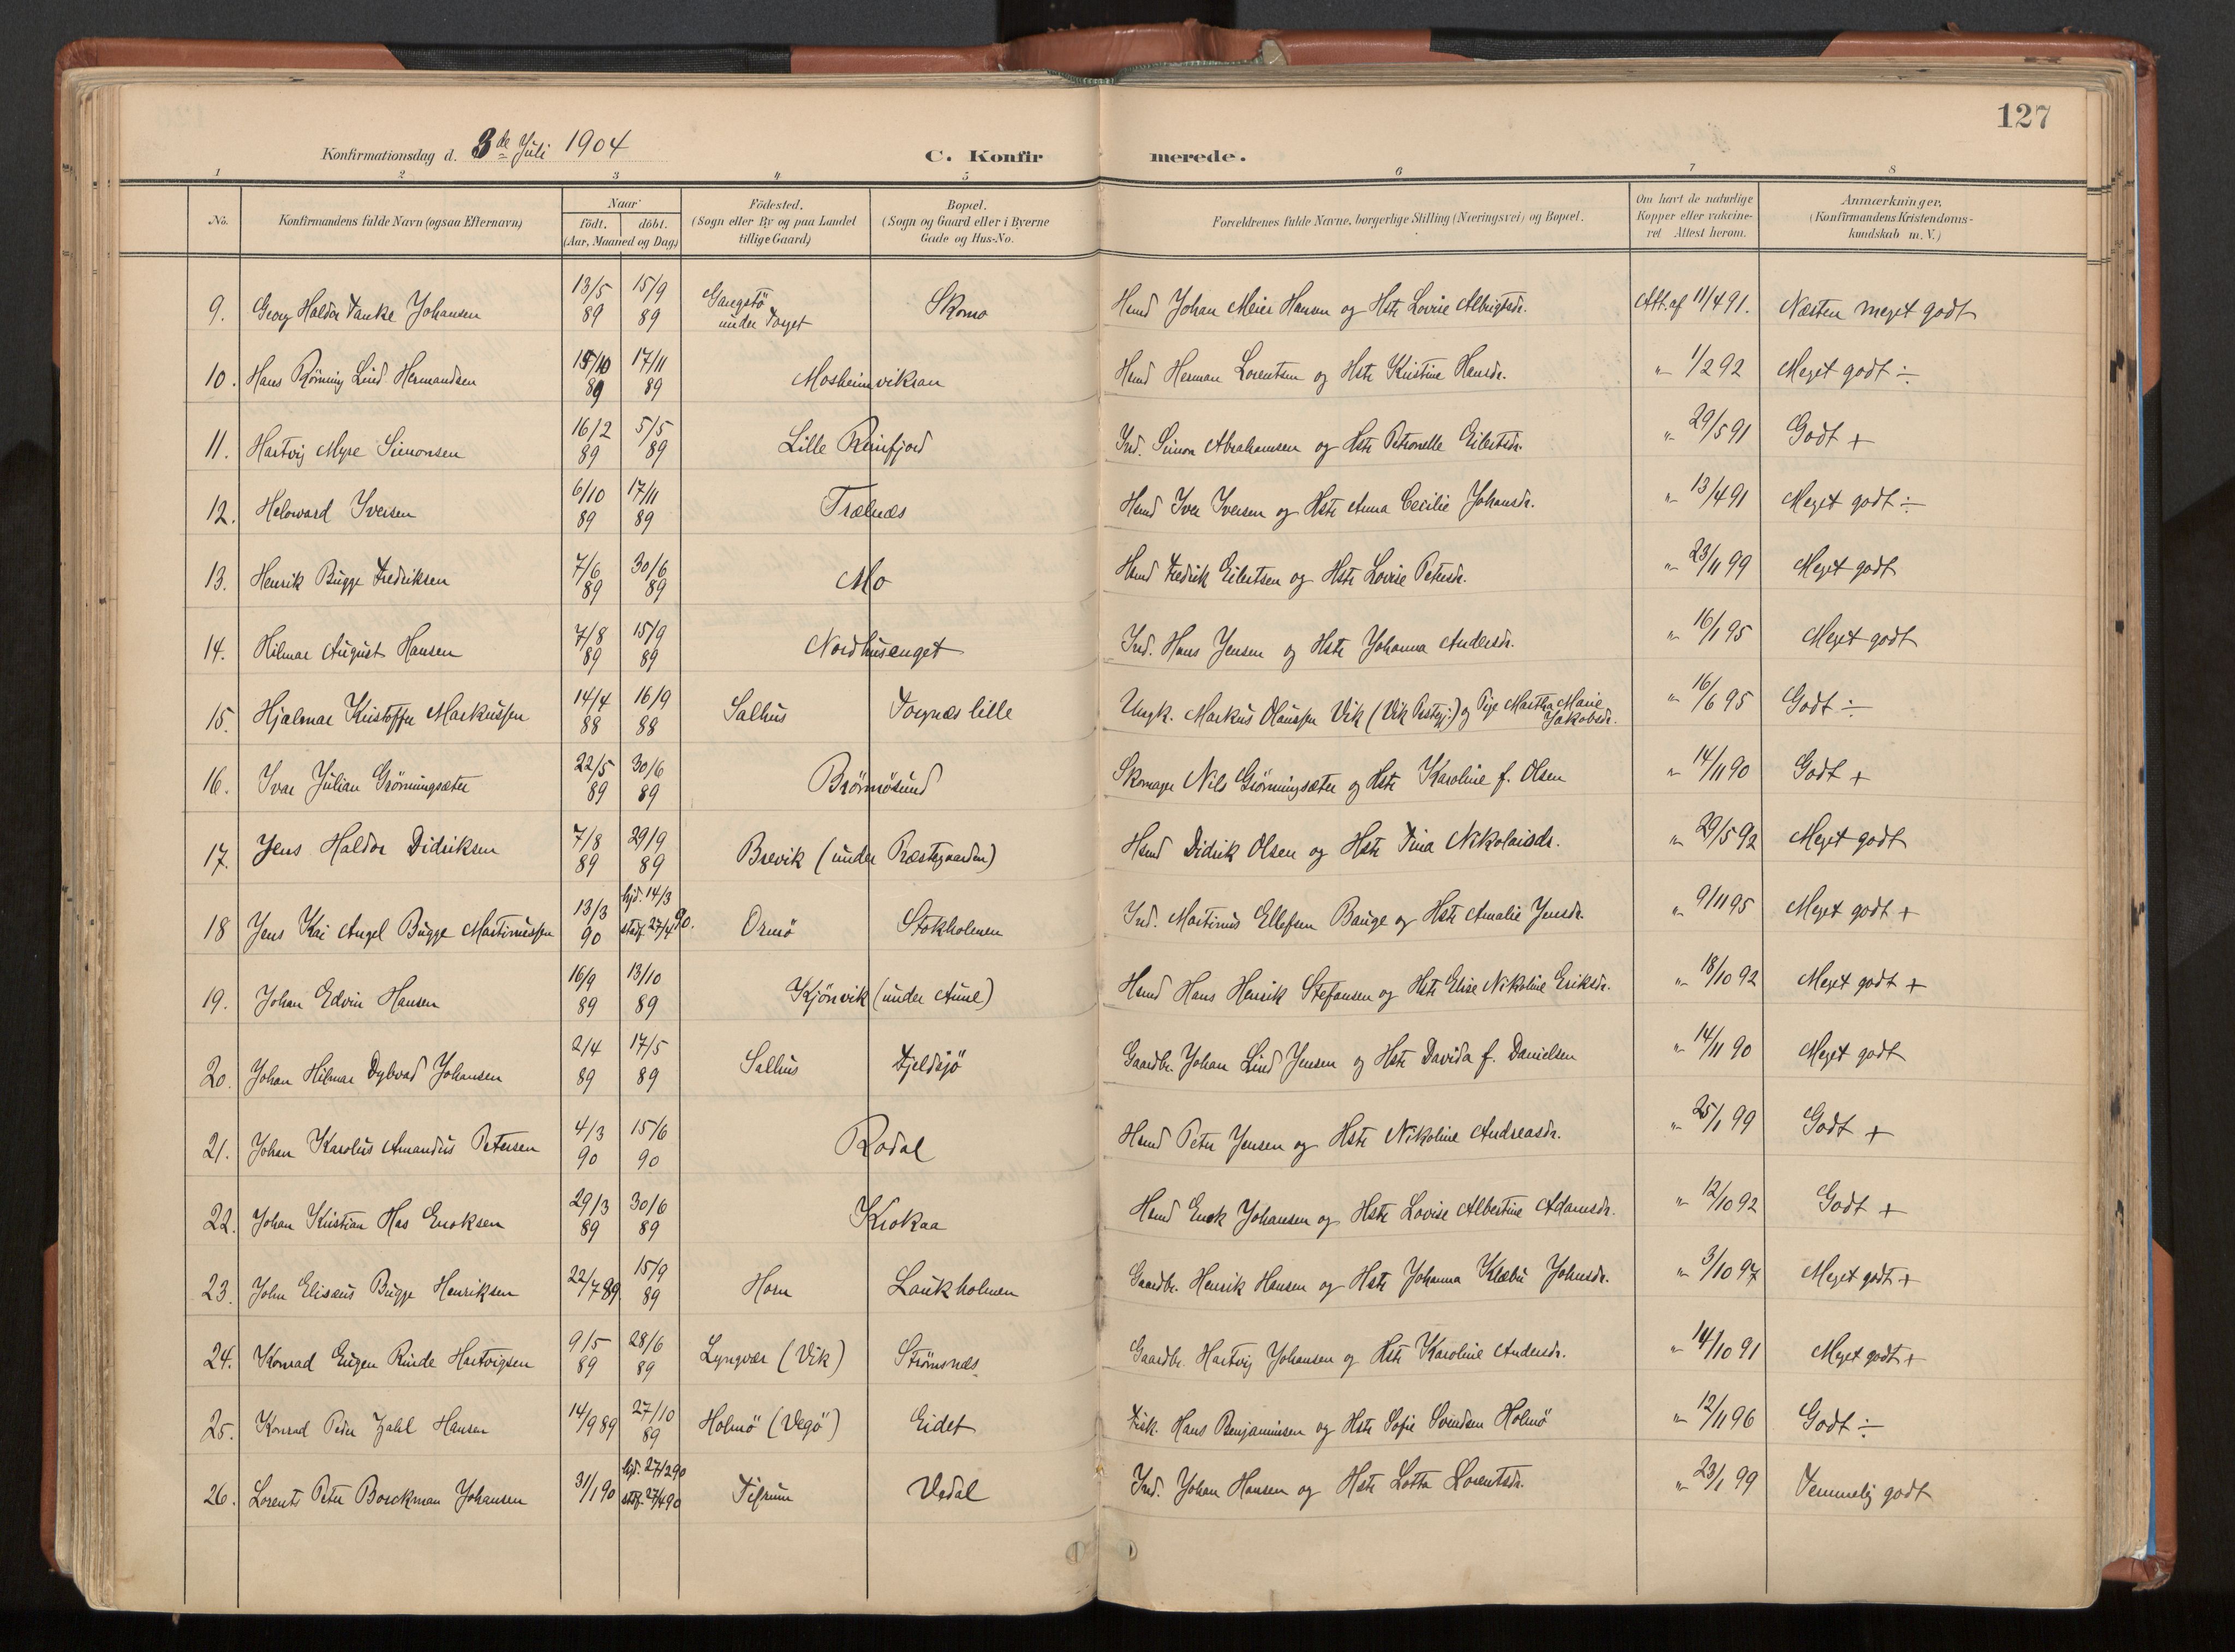 127
Konfirmationsdag d. 3de Juli 1904
C. Konfirmerede.
1 2 3 4 5 6 7 8
No. Konfirmandens fulde Navn (ogsaa Efternavn) Naar födt. döbt. (Aar, Maaned og Dag) Födested. (Sogn eller By og paa Landet tillige Gaard) Bopæl. (Sogn og Gaard eller i Byerne Gade og Hus-No. Forældrenes fulde Navne, borgerlige Stilling (Næringsvei) og Bopæl. Om havt de naturlige Kopper eller vakcineret Attest herom. Anmærkninger. (Konfirmandens Kristendomskundskab m. V.)
9. Georg Haldor Tanke Johansen 13/5 89 15/9 89 Gangstö under Torget Skomo Hmd Johan Meier Hansen og Hstr Lovise Albrigtsdr. Att. af 11/4 91. Næsten meget godt
10. Hans Rönning Lind Hermandsen 15/10 89 17/11 89 Mosheimviksan Hmd Herman Lorentsen og Hstr Kristine Hansdr. " 1/2 92 Meget godt ÷
11. Hartvig Myre Simonsen 16/2 89 5/5 89 Lille Reinfjord Ind. Simon Abrahamsen og Hstr Petronelle Eilertsdr. " 29/5 91 Godt +
12. Heloward Iversen 6/10 89 17/11 89 Trælnæs Hmd Iver Iversen og Hstr Anna Cecilie Johansdr. " 13/4 91 Meget godt ÷
13. Henrik Bugge Fredriksen 7/6 89 30/6 89 Mo Hmd Fredrik Eilertsen og Hstr Lovise Petersdr. " 23/11 99 Meget godt
14. Hilmar August Hansen 7/8 89 15/9 89 Nordhusenget Ind. Hans Jensen og Hstr Johanna Andersdr. " 16/1 95 Meget godt
15. Hjalmar Kristoffer Markussen 14/4 88 16/9 88 Salhus Torgnæs lille Ungk. Markus Olaussen Vik (Vik Prstgj.) og Pige Martha Marie Jakobsdr. " 16/6 95 Godt ÷
16. Ivar Julian Grönningsæter 22/5 89 30/6 89 Brönnösund Skomager Nils Grönningsæter og Hstr Karoline f. Olsen " 14/11 90 Godt +
17. Jens Haldor Didriksen 7/8 89 29/9 89 Brevik (under Præstegaarden) Hmd Didrik Olsen og Hstr Tina Nikolaisdr. " 29/5 92 Meget godt
18 Jens Kai Angel Bugge Martinussen 13/3 90 hjd. 14/3 stadf. 27/4 90. Ormö Stokholmen Ind. Martinus Ellefsen Bauge og Hstr Amalie Jensdr. " 9/11 95 Meget godt +
19. Johan Edvin Hansen 16/9 89 13/10 89 Kjönvik (under Aune) Hmd Hans Henrik Stefansen og Hstr Elise Nikoline Eriksdr. " 18/10 92 Meget godt +
20. Johan Hilmar Dybvad Johansen 2/4 89 17/5 89 Salhus Fjeldsjö Gaardbr. Johan Lind Jensen og Hstr Davida f. Danielsen " 14/11 90 Meget godt
21. Johan Karolus Amandus Petersen 4/3 90 15/6 90 Rodal Hmd Peter Jensen og Hstr Nikoline Andreasdr. " 25/1 99 Godt +
22. Johan Kristian Has Enoksen 29/3 89 30/6 89 Krokaa Hmd Enok Johansen og Hstr Lovise Albertine Adamsdr. " 12/10 92 Godt +
23. John Elisæus Bugge Henriksen 22/7 89 15/9 89 Horn Laukholmen Gaardbr. Henrik Hansen og Hstr Johanna Klæbu Johnsdr. " 3/10 97 Meget godt +
24. Konrad Eugen Rinde Hartvigsen 9/5 89 28/6 89 Lyngvær (Vik) Strömsnæs Gaardbr. Hartvig Johansen og Hstr Karoline Andersdr. " 14/10 91 Meget godt +
25. Konrad Peder Zahl Hansen 14/9 89 27/10 89 Holmö (Vegö) Eidet Fisk. Hans Benjaminsen og Hstr Sofie Svendsen Holmö " 12/11 96 Godt ÷
26. Lorents Peter Borckman Johansen 31/1 90 hjd. 27/2 90 stdf. 27/4 90 Tifrum Vedal Ind. Johan Hansen og Hstr Lotta Lorentsdr. " 23/1 99 Temmelig godt